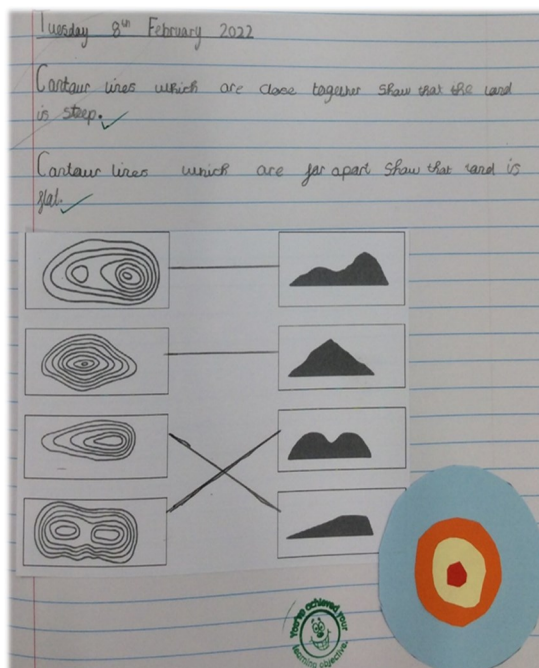 Tuesday 8th February 2022
Contour lines which are close together show that the land
is steep.
Contour lines which are far apart show that land is
flat.
You've achieved your
learning objective